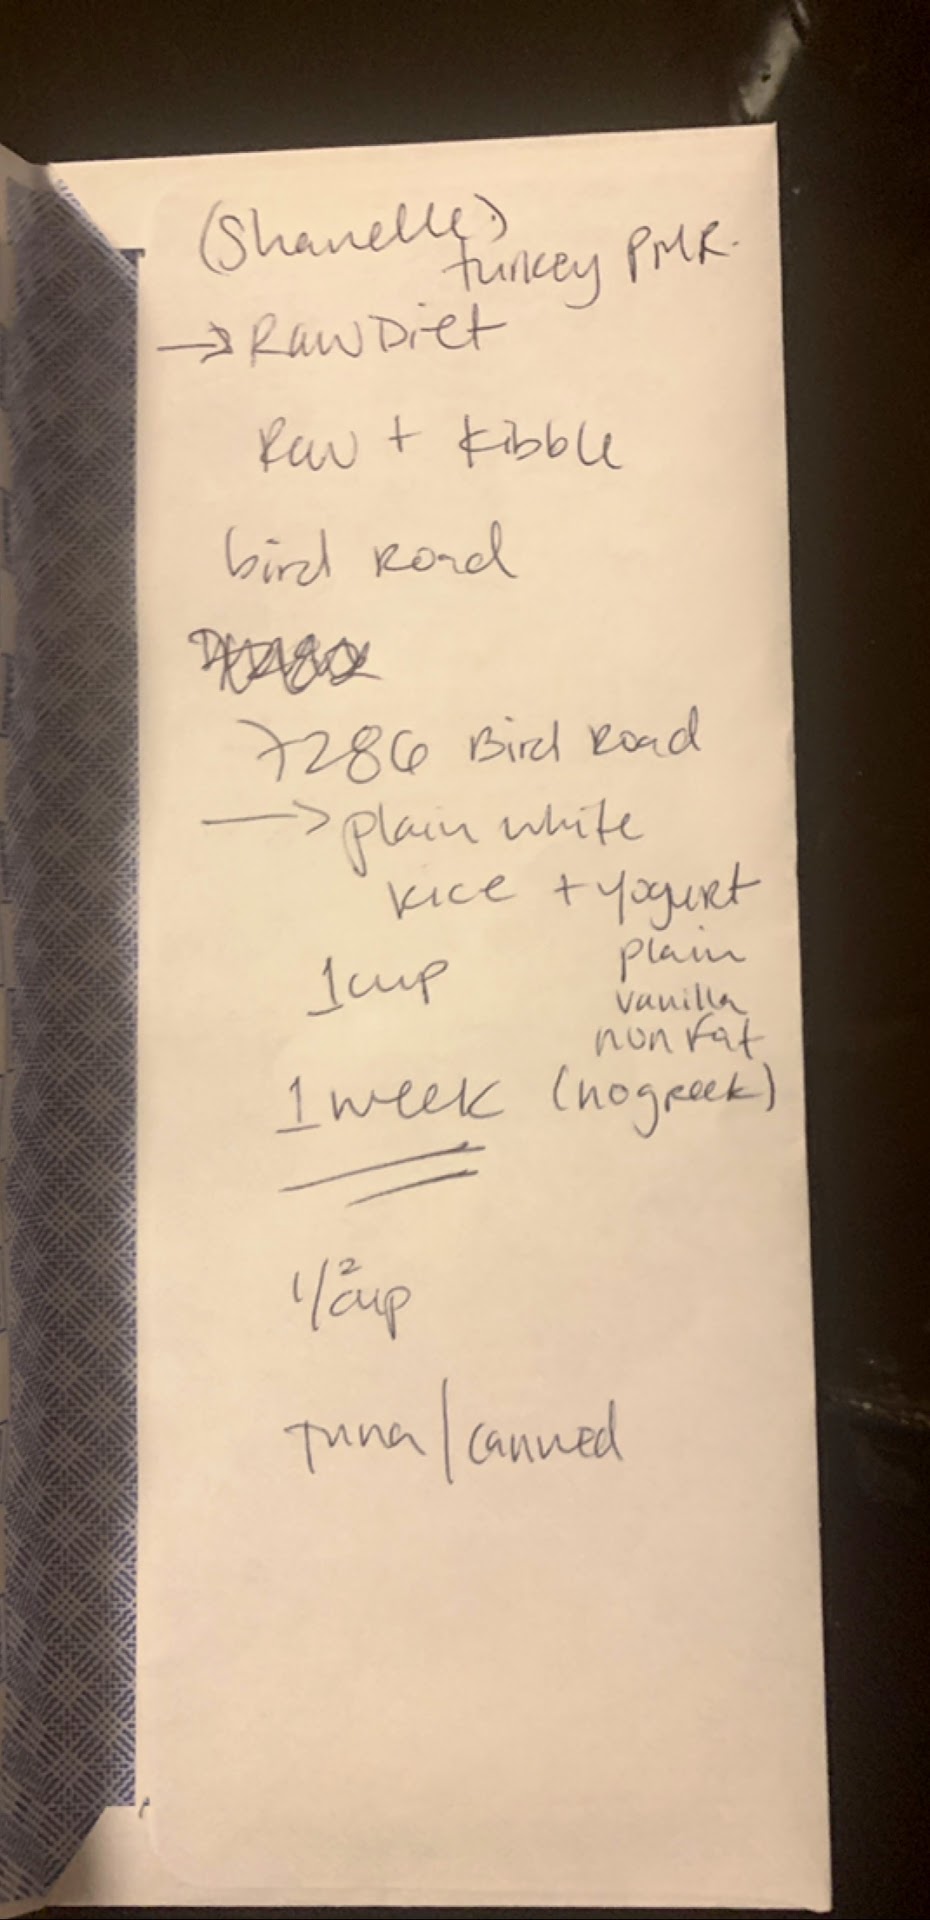 (Shanelle)
turkey PMR.
→ Raw Diet
Raw + Kibble
bird Road
7286 Bird Road
→ plain white
rice + yogurt
1 cup plain
vanilla
non fat
1 week (no greek)
1/2 cup
tuna/canned